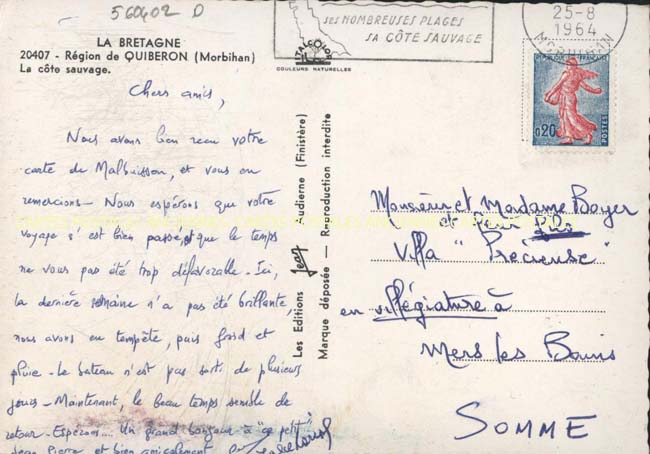 560402 D
SES NOMBREUSES PLAGES
SA CÔTE SAUVAGE
25-8
1964
MORBIHAN
LA BRETAGNE
20407 - Région de QUIBERON (Morbihan)
La côte sauvage.
ITALCOLOR
COULEURS NATURELLES
REPUBLIQUE FRANÇAISE
0,20
POSTES
Chers amis,
Nous avons bien reçu votre
carte de Malbuisson, et vous en
remercions - Nous espérons que votre
voyage s'est bien passé, et que le temps
ne vous pas été trop défavorable - Ici,
la dernière semaine n'a pas été brillante,
nous avons eu tempête, puis froid et
pluie - Le bateau n'est pas sorti de plusieurs
jours - Maintenant, le beau temps semble de
retour - Espérons... Un grand bonjour à "ce petit"
Jean Pierre et bien amicalement
Les Editions Jean Audierne (Finistère)
Marque déposée — Reproduction interdite
Monsieur et Madame Boyer
et leur
Villa "Précieuse"
en villégiature à
Mers les Bains
SOMME